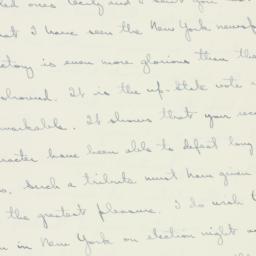 ones Cecily and I sent you
at I have seen the New York newsp
ctory is even more glorious than the
showed. It is the up-State vote
markable. It shows that your reco
racter have been able to defeat long
o. Such a tribute must have given
the greatest pleasure. I do wish
in New York on election night